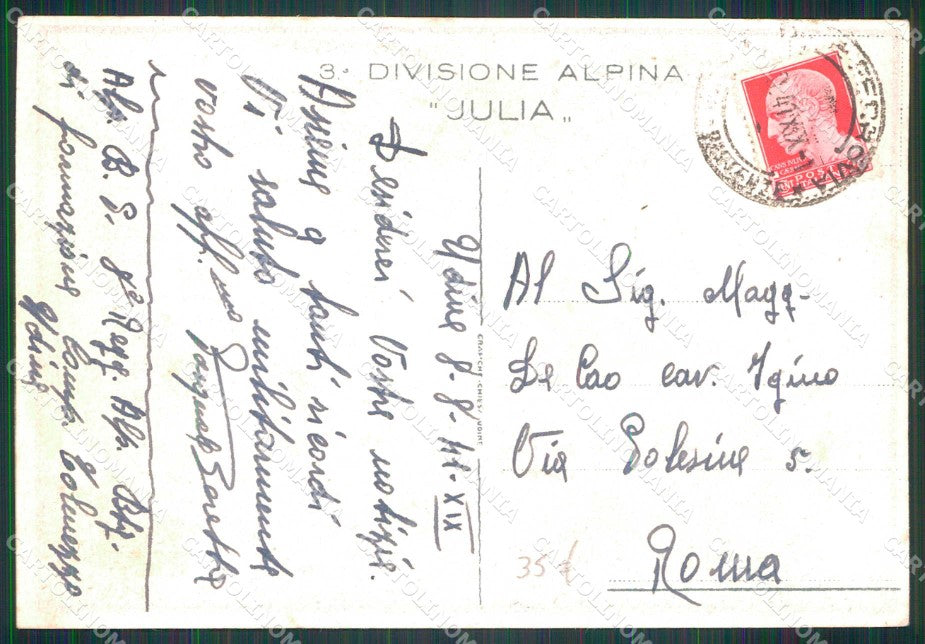 3ª DIVISIONE ALPINA
"JULIA„
Udine 8-8-41-XIX
Desiderei Vostre notizie.
Assieme a tanti ricordi
Vi saluto militarmente
vostro aff.mo Beretta
Alp. B. P. 8º Regg. Alp. Btg.
di formazione Camp. Tolmezzo
Udine
Al Sig. Magg.
De Cao cav. Igino
Via Polesine 5.
Roma
35
POSTE
GRAFICHE CHIESA UDINE
CARTOLINOMANIA